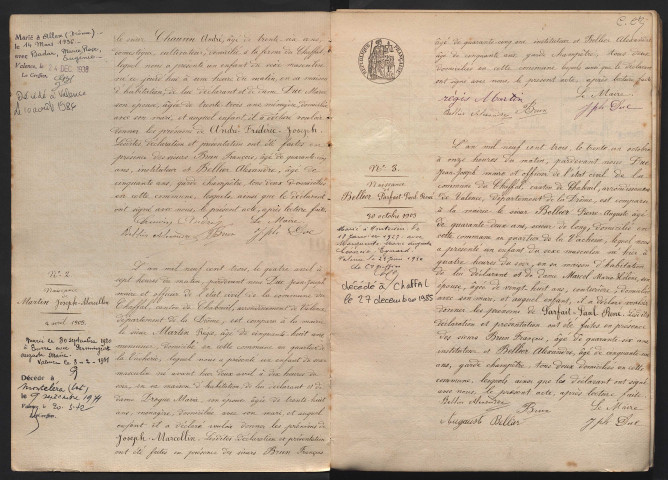 Marié à Allex (Drôme)
le 14 Mars 1936
avec
Valence, le 24 DEC. 1938
Le Greffier
Décédé à Valence
le 10 août 1984
le sieur Chauvin André, âgé de trente six ans,
cultivateur, domicilié à la ferme du Chaffal,
lequel nous a présenté un enfant du sexe masculin
né ce jourd'hui à heure du matin, en sa maison
d'habitation, de lui déclarant et de dame Duc Marie
son épouse, âgée de trente trois ans ménagère, domiciliée
avec son mari, et auquel enfant il a déclaré vouloir
donner les prénoms de André Frédéric Joseph.
Lesdites déclaration et présentation ont été faites en
présence des sieurs Brun François, âgé de quarante cinq
ans, instituteur et Bellier Alexandre, âgé de
cinquante ans, garde champêtre, tous deux domiciliés
en cette commune, lesquels ainsi que le déclarant
ont signé avec nous, le présent acte, après lecture faite.
Le Maire
Bellier Alexandre Brun Jph Duc
N° 2
Naissance
de
Martin Joseph Marcellin
2 avril 1903.
Marié le 30 septembre 1930
à
Valence le 3-2-1931
Décédé à
Montélier
le 9 septembre 1974
L'an mil neuf cent trois, le quatre avril à
sept heures du matin, pardevant nous Duc Jean Joseph
maire et officier de l'état civil de la commune du
Chaffal, canton de Chabeuil, arrondissement de Valence
département de la Drôme, est comparu à la mairie
le sieur Martin Régis, âgé de vingt huit
ans, domicilié en cette commune au quartier de
la Vacherie, lequel nous a présenté un enfant du sexe
masculin né avant hier deux avril à dix heures du
soir, en sa maison d'habitation, de lui déclarant et de
dame Maria, son épouse, âgée de trente huit
ans, ménagère, domiciliée avec son mari et auquel
enfant il a déclaré vouloir donner les prénoms de
Joseph Marcellin. Lesdites déclaration et présentation
ont été faites en présence des sieurs Brun François
RÉPUBLIQUE FRANÇAISE
âgé de quarante cinq ans, instituteur et Bellier Alexandre
âgé de cinquante ans garde champêtre, tous deux
domiciliés en cette commune, lesquels ainsi que le déclarant
ont signé avec nous le présent acte, après lecture faite
régis Martin Le Maire
Bellier Alexandre Brun Jph Duc
N° 3.
Naissance
de
Bellier Parfait Paul René
30 octobre 1903
Marié à
le 27 1927 avec
Valence le 29 juin 1930
décédé à Chaffal
le 27 décembre 1985
L'an mil neuf cent trois, le trente un octobre
à onze heures du matin, pardevant nous Duc
Jean Joseph, maire et officier de l'état civil de la
commune du Chaffal, canton de Chabeuil, arrondissement
de Valence, département de la Drôme, est comparu
à la mairie le sieur Bellier Pierre Auguste âgé
de quarante deux ans, scieur de long, domicilié en
cette commune au quartier de la Vacherie, lequel nous
a présenté un enfant du sexe masculin né hier à
quatre heures du soir, en sa maison d'habitation
de lui déclarant et de dame Marcel Marie Hélène, son
épouse, âgée de vingt huit ans, couturière, domiciliée
avec son mari, et auquel enfant, il a déclaré vouloir
donner les prénoms de Parfait Paul René. Lesdites
déclaration et présentation ont été faites en présence
des sieurs Brun François, âgé de quarante six ans
instituteur et Bellier Alexandre, âgé de cinquante un
ans, garde champêtre, tous deux domiciliés en cette
commune, lesquels ainsi que le déclarant ont signé
avec nous, le présent acte, après lecture faite.
Bellier Alexandre Brun Le Maire
Auguste Bellier Jph Duc